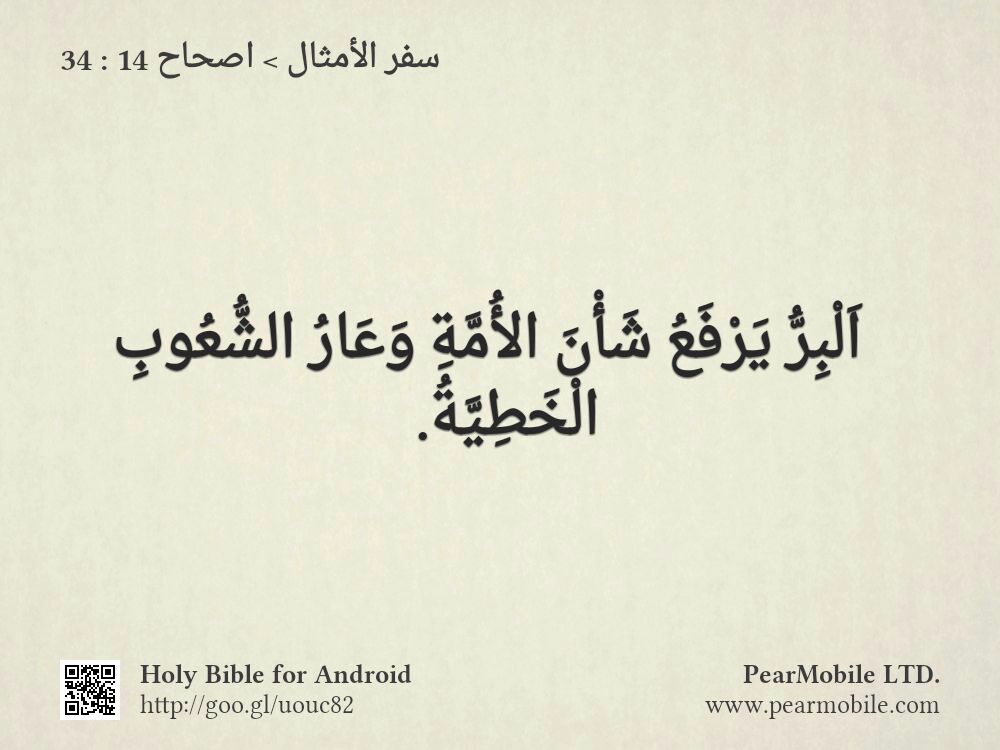 سفر الأمثال > اصحاح 14 : 34
اَلْبِرُّ يَرْفَعُ شَأْنَ الأُمَّةِ وَعَارُ الشُّعُوبِ
الْخَطِيَّةُ.
Holy Bible for Android
http://goo.gl/uouc82
PearMobile LTD.
www.pearmobile.com